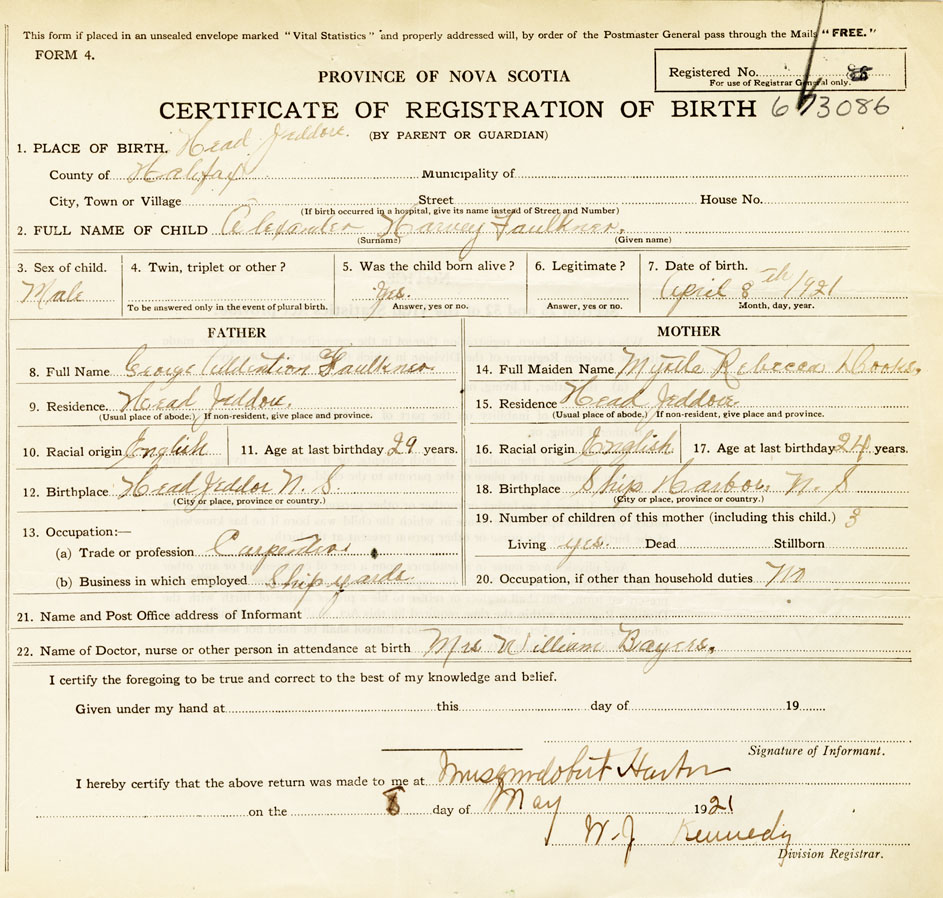 This form if placed in an unsealed envelope marked "Vital Statistics" and properly addressed will, by order of the Postmaster General pass through the Mails "FREE."
FORM 4.
PROVINCE OF NOVA SCOTIA
Registered No.
For use of Registrar General only.
CERTIFICATE OF REGISTRATION OF BIRTH 6 73086
(BY PARENT OR GUARDIAN)
1. PLACE OF BIRTH. Head Jeddore.
County of Halifax Municipality of
City, Town or Village Street House No.
(If birth occurred in a hospital, give its name instead of Street and Number)
2. FULL NAME OF CHILD Alexander Harvey Faulkner.
(Surname) (Given name)
3. Sex of child. 4. Twin, triplet or other? 5. Was the child born alive? 6. Legitimate? 7. Date of birth.
Male yes. April 8th/1921
To be answered only in the event of plural birth. Answer, yes or no. Answer, yes or no. Month, day, year.
FATHER MOTHER
8. Full Name George Faulkner 14. Full Maiden Name Myrtle Rebecca Dooks.
9. Residence. Head Jeddore. 15. Residence Head Jeddore
(Usual place of abode.) If non-resident, give place and province. (Usual place of abode.) If non-resident, give place and province.
10. Racial origin English 11. Age at last birthday 29 years. 16. Racial origin English 17. Age at last birthday 24 years.
12. Birthplace Head Jeddor N. S. 18. Birthplace Ship Harbor. N. S
(City or place, province or country.) (City or place, province or country.)
19. Number of children of this mother (including this child.) 3
13. Occupation:—
(a) Trade or profession Living yes. Dead Stillborn
(b) Business in which employed Shipyards 20. Occupation, if other than household duties No
21. Name and Post Office address of Informant
22. Name of Doctor, nurse or other person in attendance at birth Mrs William Bayers.
I certify the foregoing to be true and correct to the best of my knowledge and belief.
Given under my hand at this day of 19
Signature of Informant.
I hereby certify that the above return was made to me at Musquodobit Harbor
on the 8 day of May 1921
W. J Kennedy
Division Registrar.